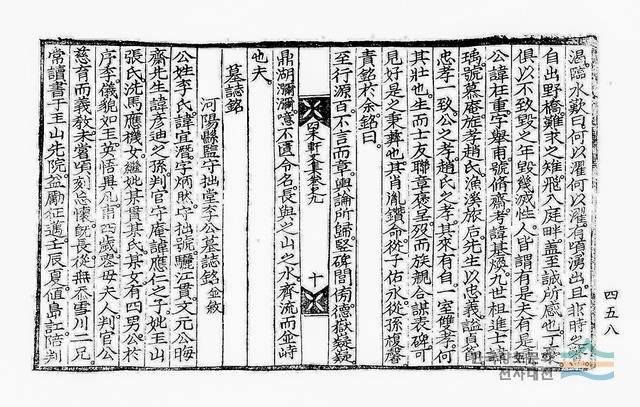 渴臨水歎曰何以濯何以濯有頃湧出且非時之
自出野橋難求之雉飛入庭畔盖至誠所感也丁
俱以不致毁之年毁幾滅性人皆謂有是夫有是
公諱柱重字擧甫號脩齋考諱基煥九世祖進士
瑀號慕庵旌孝趙氏漁溪旅后先生以忠義謚貞
忠孝一致公之孝趙氏之孝其來有自一室雙孝何
其壯也生而士友聯章褒呈歿而族親合謀表碑可
見好是之秉彛也其肖胤鑽命從子佑永從孫馥馨
責銘於余銘曰
至行源百不言而章輿論所歸竪碑閭傍德嶽嶷嶷
鼎湖瀰瀰噫不匱令名長與之山之水齊流而並峙
也夫
墓誌銘
河陽縣監守拙堂李公墓誌銘 並敘
公姓李氏諱宜潛字炳然守拙號驪江貫文元公晦
齋先生諱彦迪之孫判官守庵諱應仁之子妣玉山
張氏沈馬應機女繼妣某貫某氏某女有四男公於
序季儀貌如玉英悟異凡甫四歲喪母夫人判官公
慈育而義敎未嘗頃刻忘懷旣長從無忝雪川二兄
常讀書于玉山先院益勵征邁壬辰夏値島訌陪判
四未軒文集卷之九
十
四五八